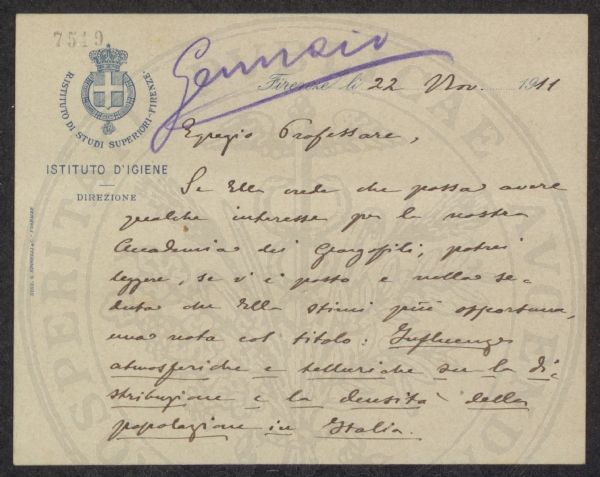 7519
Gennaio
R. ISTITUTO DI STUDI SUPERIORI-FIRENZE
Firenze li 22 Nov. 1911
ISTITUTO D'IGIENE
DIREZIONE
Egregio Professore,
Se Ella crede che possa avere
qualche interesse per la nostra
Accademia dei Georgofili, potrei
leggere, se vi è posto e nella se-
duta che Ella stimi più opportuna,
una nota col titolo: Influenze
atmosferiche e telluriche su la di-
stribuzione e la densità della
popolazione in Italia.